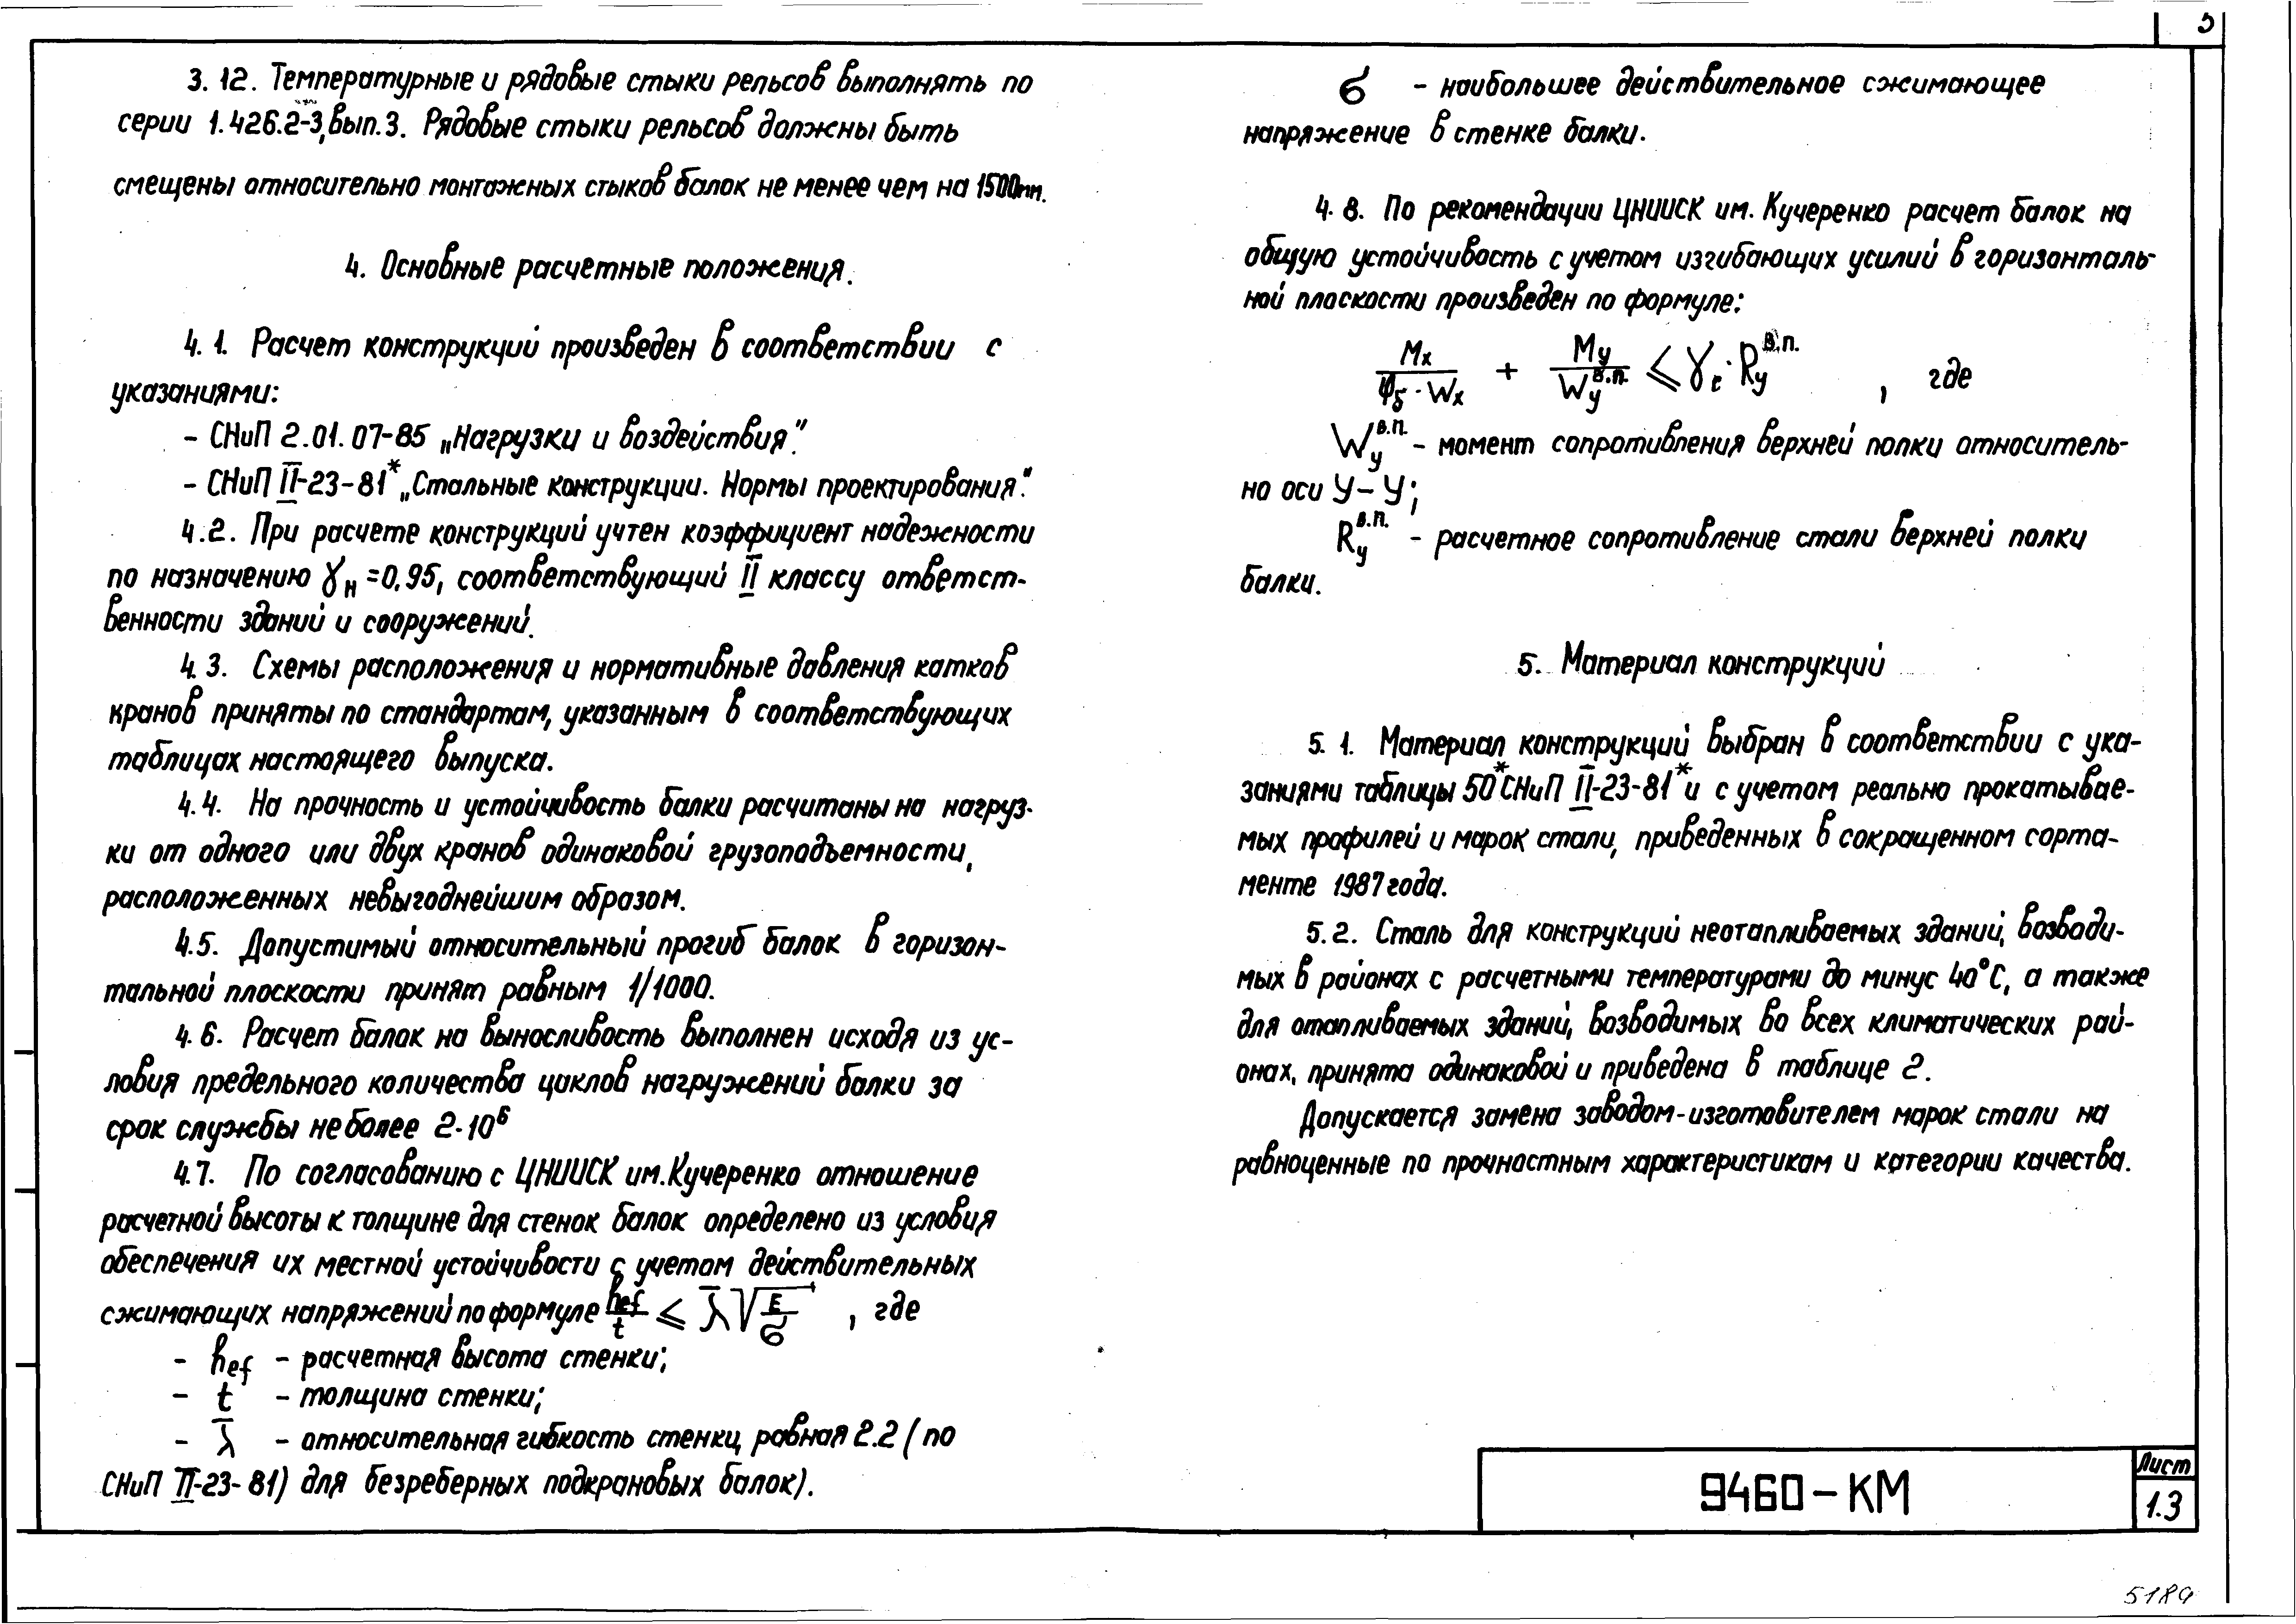 5
3.12. Температурные и рядовые стыки рельсов выполнять по
серии 1.426.2-3, вып.3. Рядовые стыки рельсов должны быть
смещены относительно монтажных стыков балок не менее чем на 1500мм.
4. Основные расчетные положения.
4.1. Расчет конструкций произведен в соответствии с
указаниями:
- СНиП 2.01.07-85 „Нагрузки и воздействия".
- СНиП II-23-81* „Стальные конструкции. Нормы проектирования".
4.2. При расчете конструкций учтен коэффициент надежности
по назначению γн =0,95, соответствующий II классу ответст-
венности зданий и сооружений.
4.3. Схемы расположения и нормативные давления катков
кранов приняты по стандартам, указанным в соответствующих
таблицах настоящего выпуска.
4.4. На прочность и устойчивость балки расчитаны на нагруз-
ки от одного или двух кранов одинаковой грузоподъемности,
расположенных невыгоднейшим образом.
4.5. Допустимый относительный прогиб балок в горизон-
тальной плоскости принят равным 1/1000.
4.6. Расчет балок на выносливость выполнен исходя из ус-
ловия предельного количества циклов нагружений балки за
срок службы не более 2·10⁶
4.7. По согласованию с ЦНИИСК им.Кучеренко отношение
расчетной высоты к толщине для стенок балок определено из условия
обеспечения их местной устойчивости с учетом действительных
сжимающих напряжений по формуле hef/t ≤ λ̅ √E/σ , где
- hef - расчетная высота стенки;
- t - толщина стенки;
- λ̅ - относительная гибкость стенки, равная 2.2 (по
СНиП II-23-81) для безреберных подкрановых балок).
σ - наибольшее действительное сжимающее
напряжение в стенке балки.
4.8. По рекомендации ЦНИИСК им. Кучеренко расчет балок на
общую устойчивость с учетом изгибающих усилий в горизонталь-
ной плоскости произведен по формуле:
Mx/φб·Wx + My/Wy в.п. ≤ γc·Ry в.п. , где
Wy в.п. - момент сопротивления верхней полки относитель-
но оси У-У;
Ry в.п. - расчетное сопротивление стали верхней полки
балки.
5. Материал конструкций
5.1. Материал конструкций выбран в соответствии с ука-
заниями таблицы 50* СНиП II-23-81* и с учетом реально прокатывае-
мых профилей и марок стали, приведенных в сокращенном сорта-
менте 1987 года.
5.2. Сталь для конструкций неотапливаемых зданий, возводи-
мых в районах с расчетными температурами до минус 40°С, а также
для отапливаемых зданий, возводимых во всех климатических рай-
онах, принята одинаковой и приведена в таблице 2.
Допускается замена заводом-изготовителем марок стали на
равноценные по прочностным характеристикам и категории качества.
9460-КМ
Лист
1.3
5189